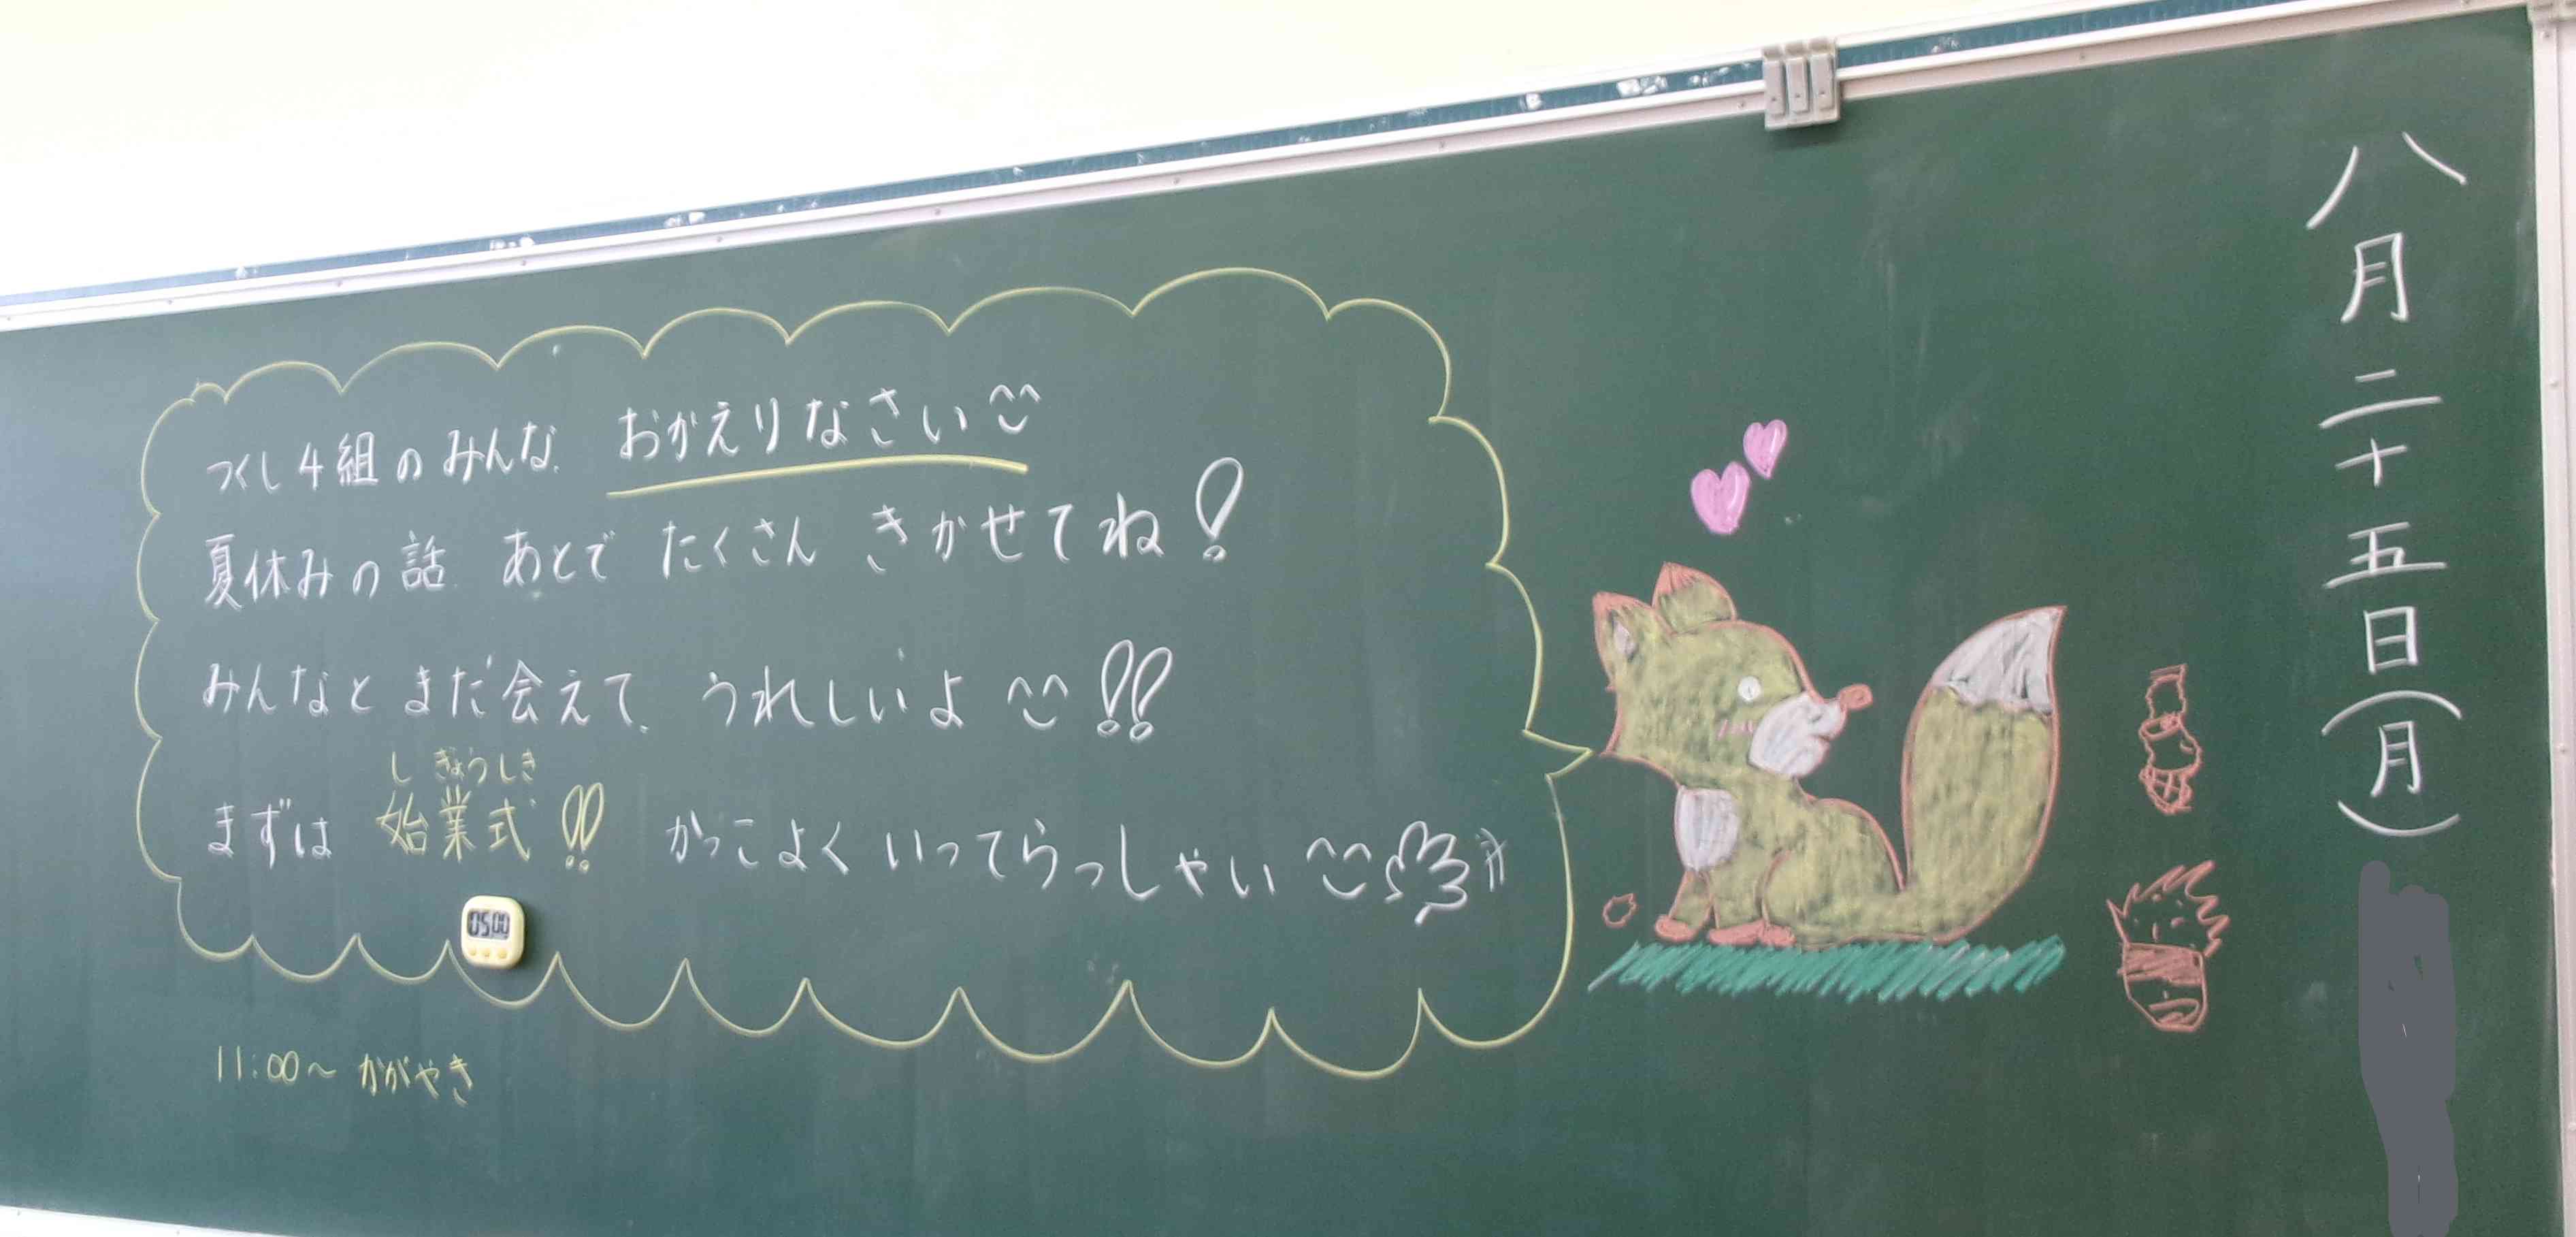 八月二十五日(月)
つくし4組のみんな おかえりなさい
夏休みの話 あとで たくさん きかせてね!
みんなと また会えて うれしいよ !!
しぎょうしき
まずは 始業式!! かっこよく いってらっしゃい
05:00
11:00〜 かがやき